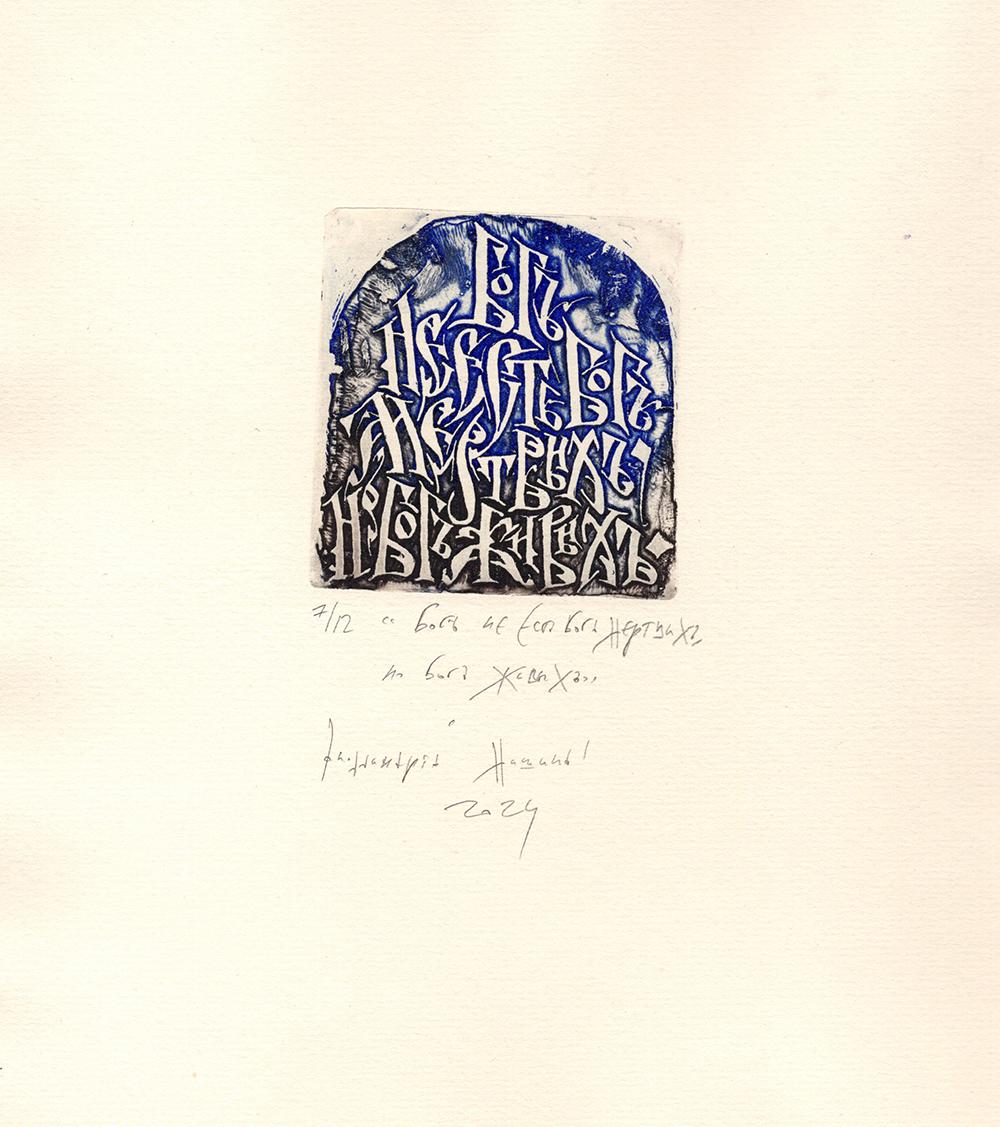 Богъ
не есть Богъ
мертвыхъ,
но Богъ живыхъ
7/12 " Богъ не Есть Богъ Мертвыхъ
но Богъ Живыхъ"
2024